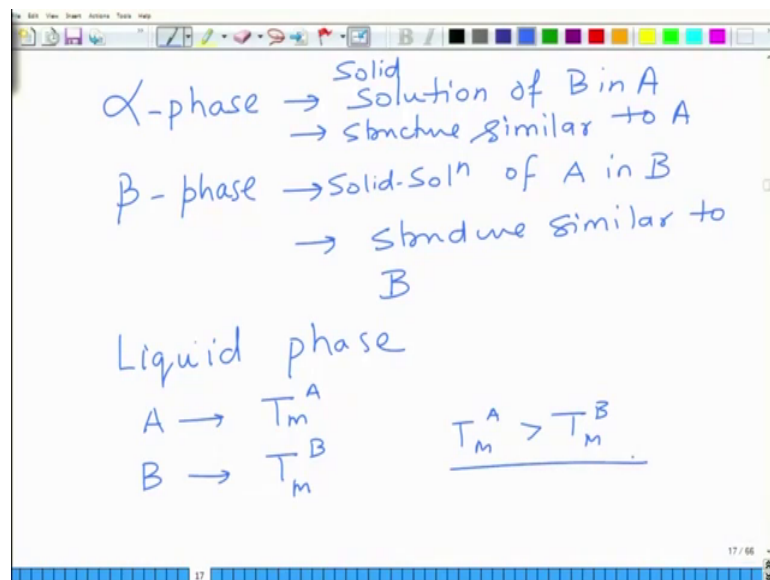 File Edit View Insert Actions Tools Help
Solid
α-phase → solution of B in A
→ structure similar to A
β - phase → Solid-Solⁿ of A in B
→ structure similar to
B
Liquid phase
A → Tₘᴬ
B → Tₘᴮ
Tₘᴬ > Tₘᴮ
17 / 66
17